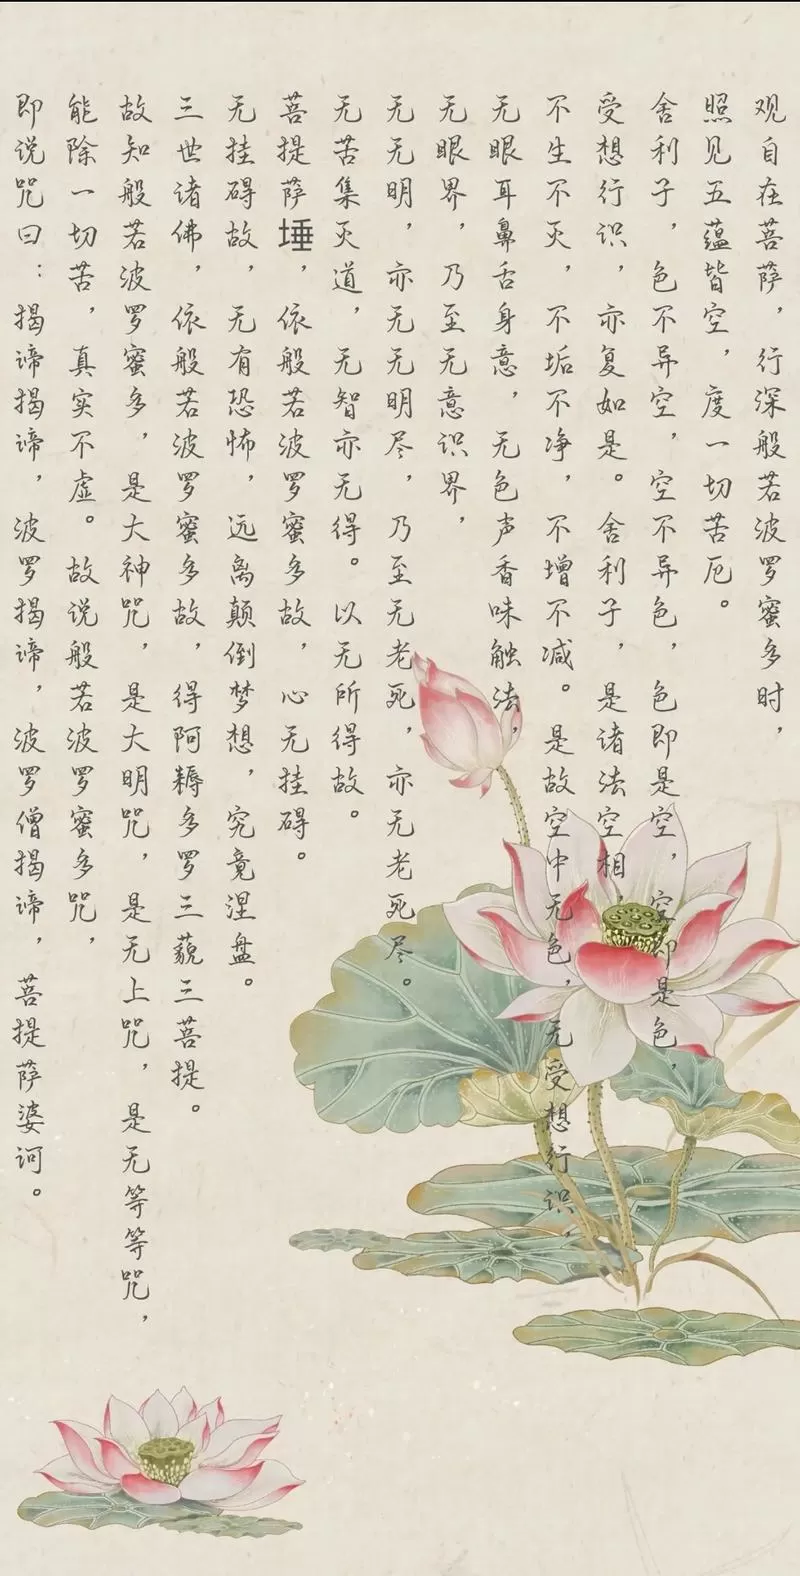 观自在菩萨，行深般若波罗蜜多时，
照见五蕴皆空，度一切苦厄。
舍利子，色不异空，空不异色，色即是空，空即是色，
受想行识，亦复如是。舍利子，是诸法空相，
不生不灭，不垢不净，不增不减。是故空中无色，无受想行识，
无眼耳鼻舌身意，无色声香味触法，
无眼界，乃至无意识界，
无无明，亦无无明尽，乃至无老死，亦无老死尽。
无苦集灭道，无智亦无得。以无所得故。
菩提萨埵，依般若波罗蜜多故，心无挂碍。
无挂碍故，无有恐怖，远离颠倒梦想，究竟涅盘。
三世诸佛，依般若波罗蜜多故，得阿耨多罗三藐三菩提。
故知般若波罗蜜多，是大神咒，是大明咒，是无上咒，是无等等咒，
能除一切苦，真实不虚。故说般若波罗蜜多咒，
即说咒曰：揭谛揭谛，波罗揭谛，波罗僧揭谛，菩提萨婆诃。